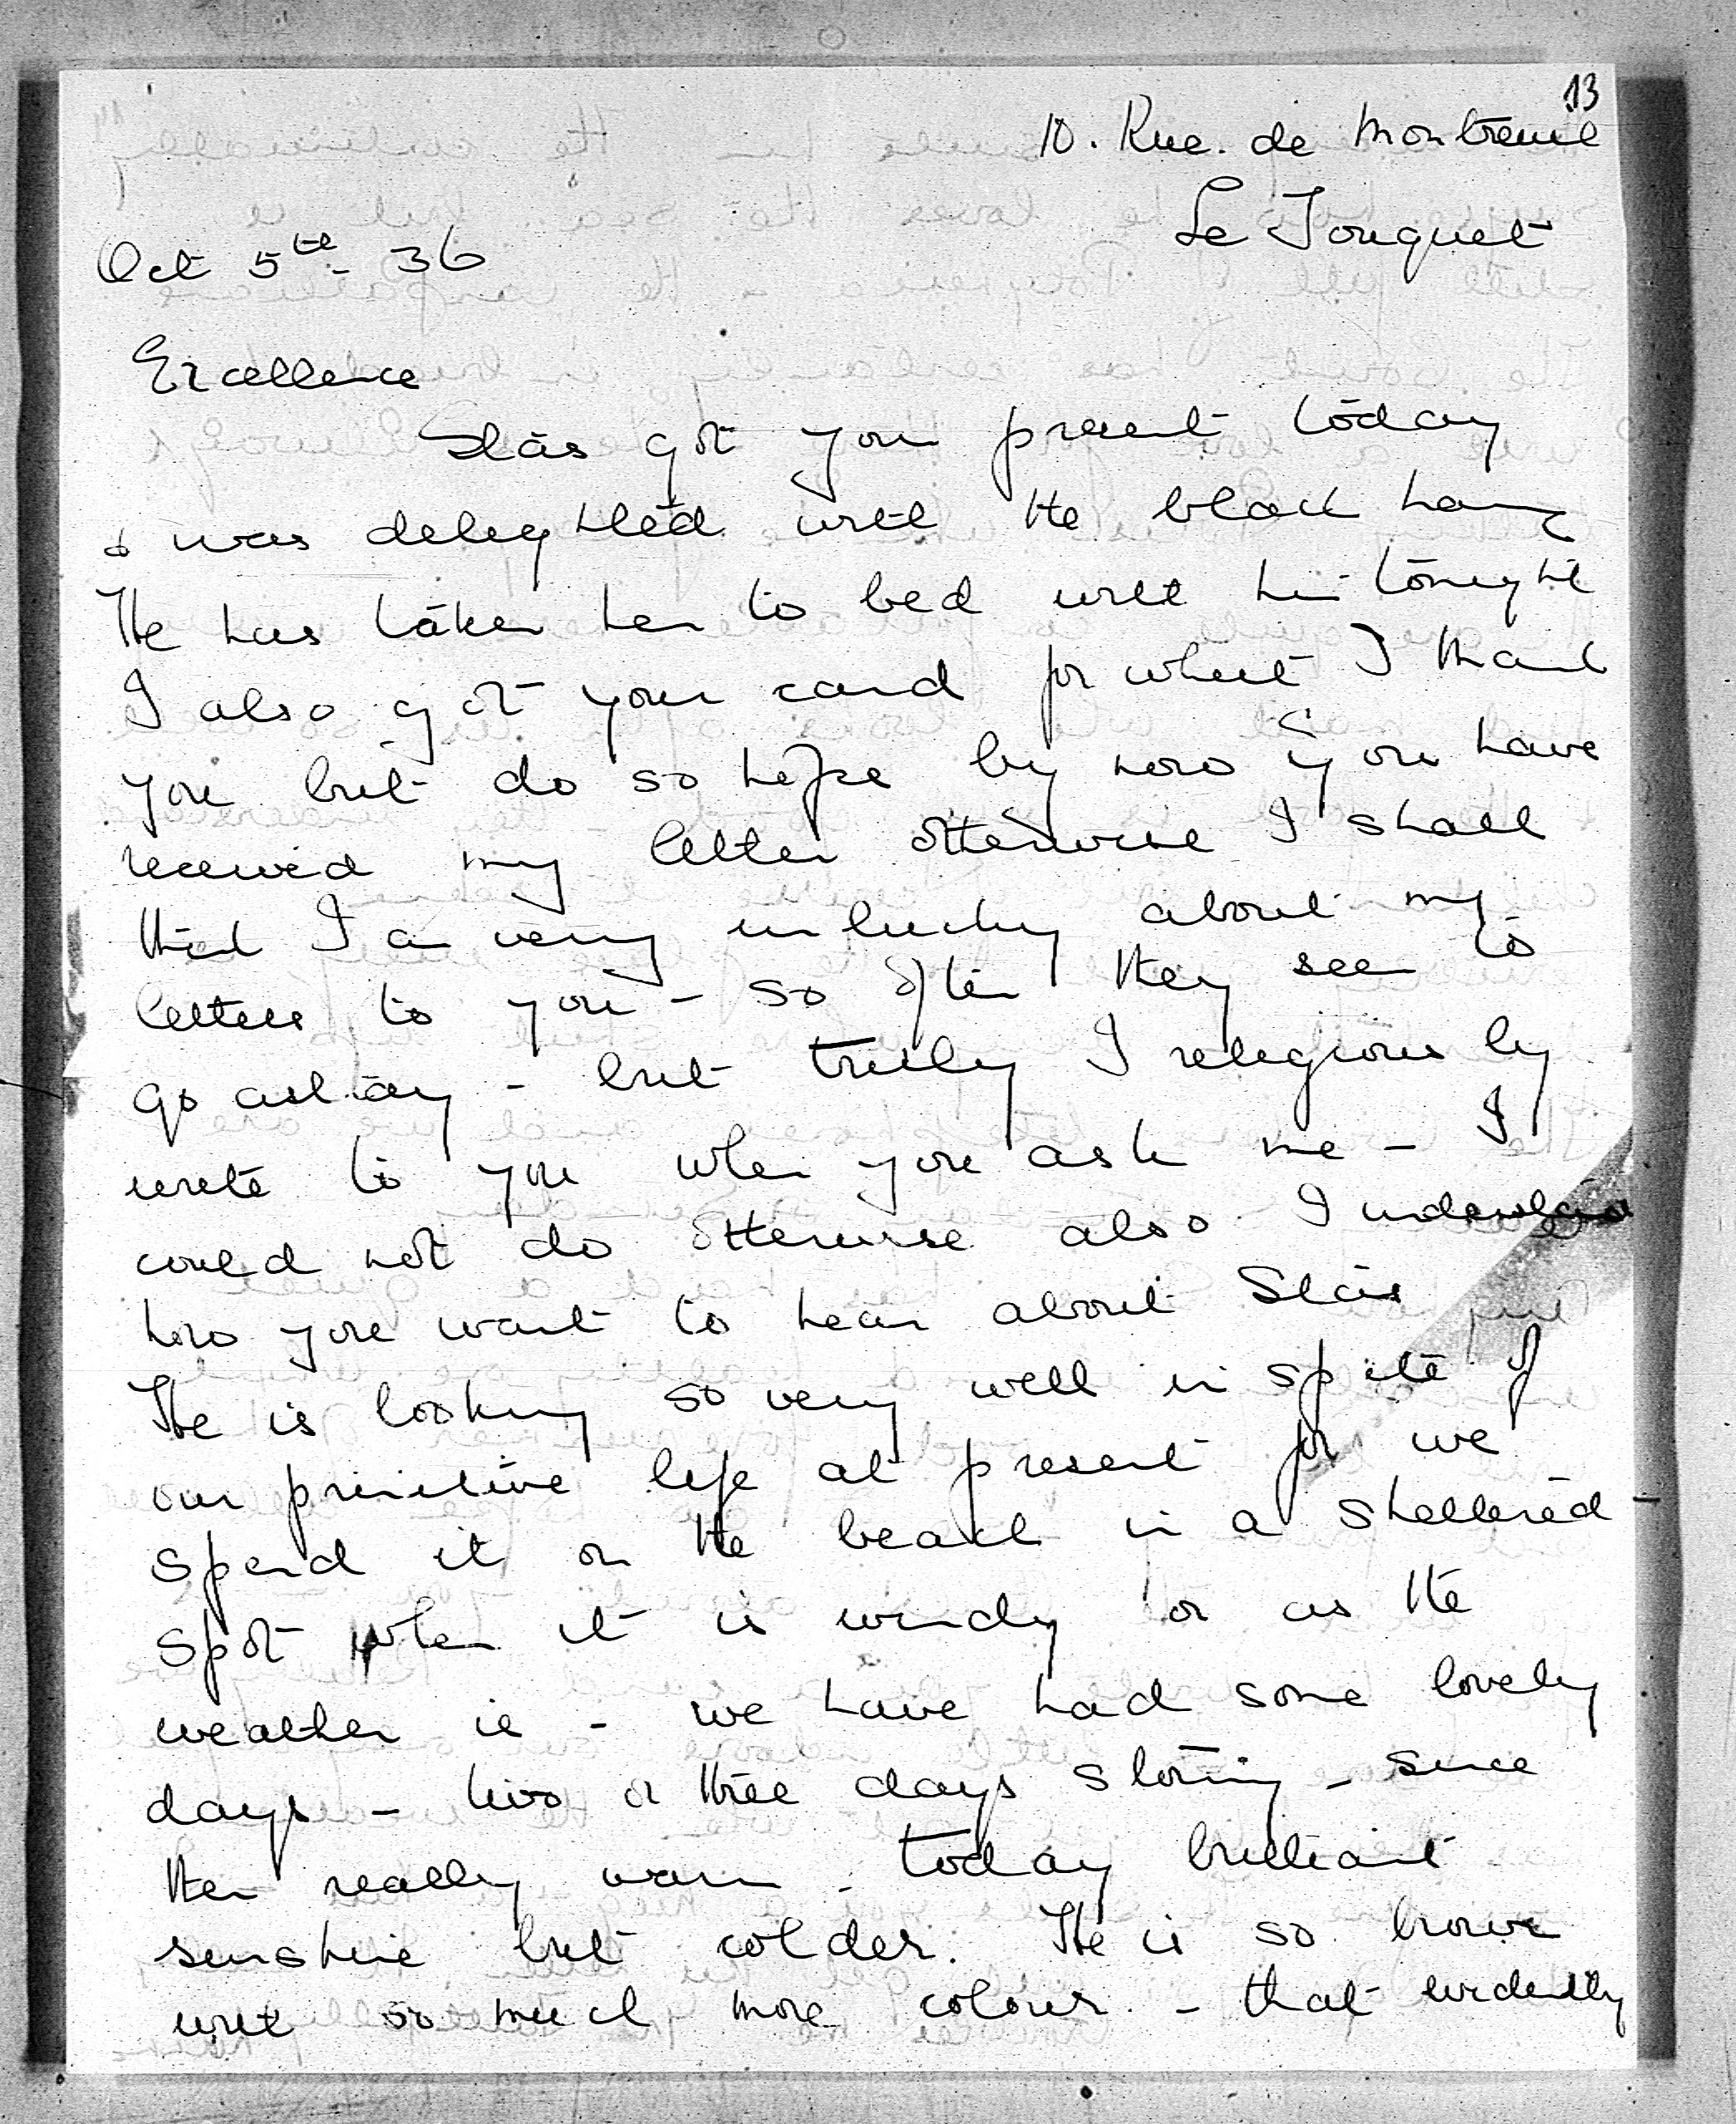 13
10. Rue. de Montreuil
Le Touquet
Oct 5th - 36
Excellence
Stas got your present today
& was delighted with the black
He has taken her to bed with him tonight
I also got your card for which I thank
you but do so hope by now you have
received my letter otherwise I shall
think I am very unlucky about my
letters to you - so often they seem to
go astray - but truly I religiously
write to you when you ask me - I
could not do otherwise also I understand
how you want to hear about Stas
He is looking so very well in spite of
our primitive life at present for we
spend it on the beach in a sheltered
spot when it is windy or as the
weather is - we have had some lovely
days - two or three days stormy - since
then really warm - today brilliant
sunshine but colder. He is so brown
with so much more colour - that evidently